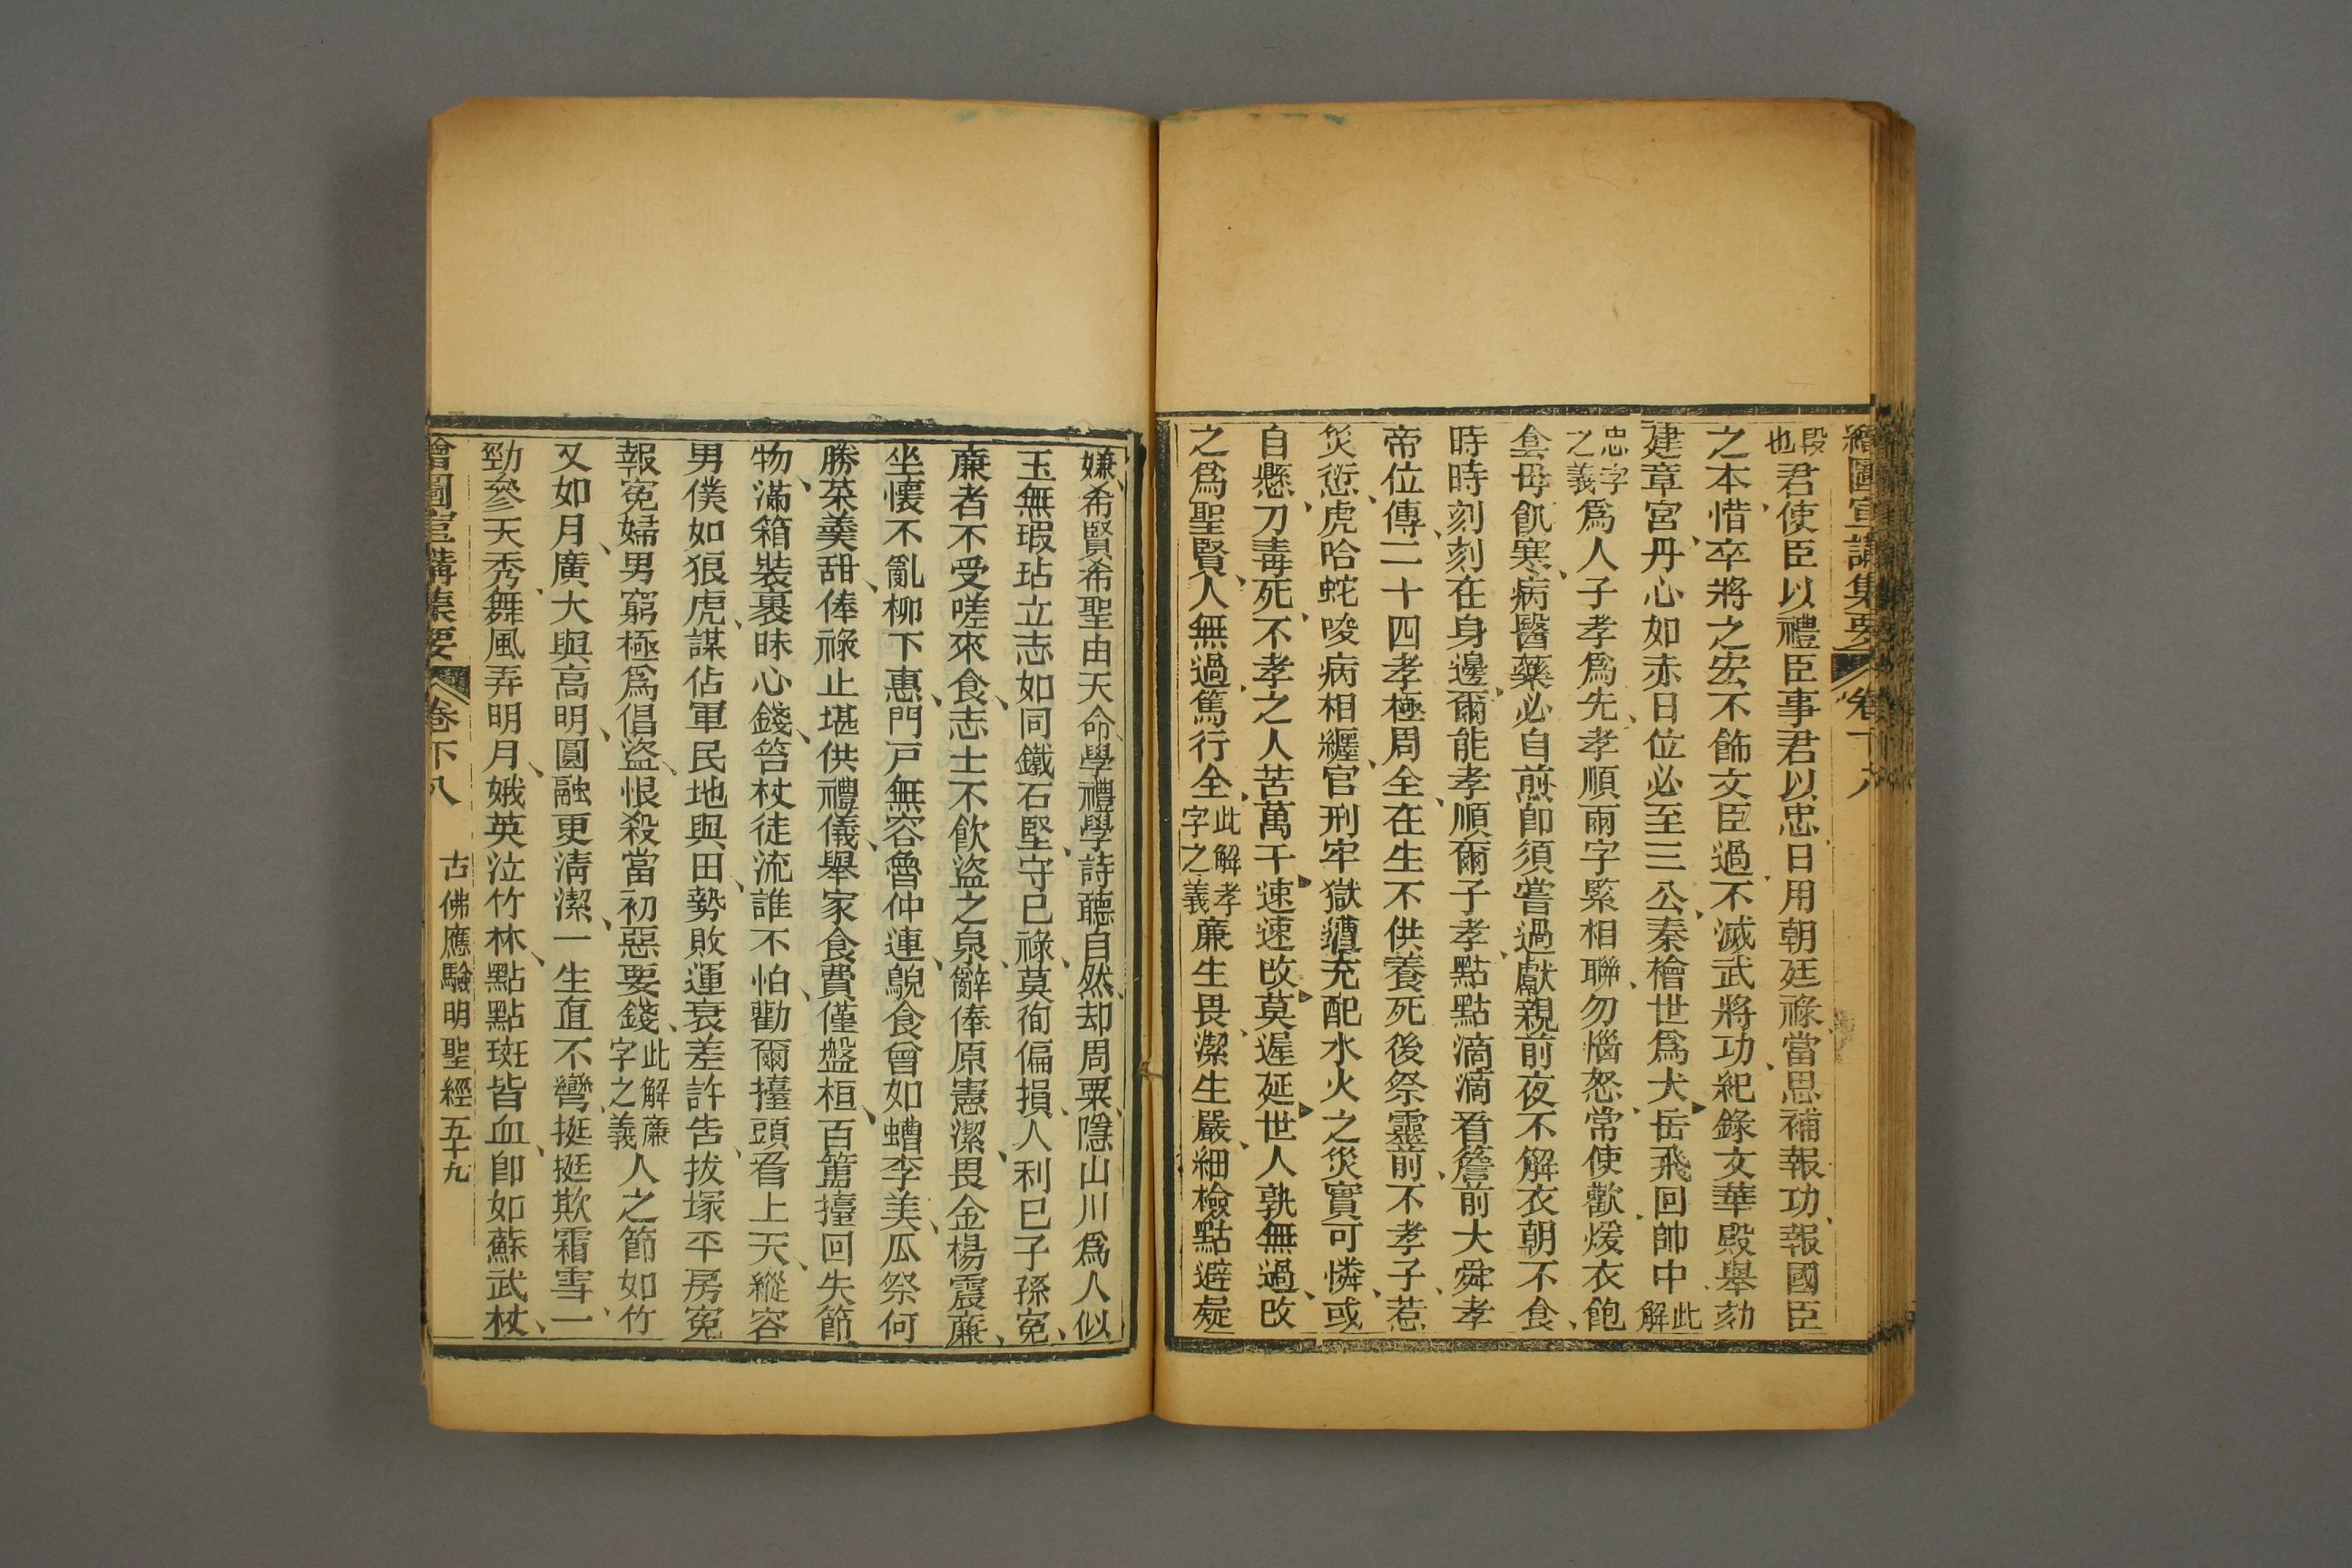 繪圖宣講集要 卷下八
段也君使臣以禮臣事君以忠日用朝廷祿當思補報功報國臣
之本惜卒將之宏不飾文臣過不滅武將功紀錄文華殿舉刻
建章宮丹心如赤日位必至三公秦檜世爲犬岳飛回帥中此解
忠字之義爲人子孝爲先孝順兩字緊相聯勿惱怒常使歡煖衣飽
食母飢寒病醫藥必自煎卽須嘗過獻親前夜不解衣朝不食
時時刻刻在身邊爾能孝順爾子孝點點滴滴看簷前大舜孝
帝位傳二十四孝極周全在生不供養死後祭靈前不孝子惹
災愆虎哈蛇咬病相纒官刑牢獄遭充配水火之災實可憐或
自懸刀毒死不孝之人苦萬千速速改莫遲延世人孰無過改
之爲聖賢人無過篤行全此解孝字之義廉生畏潔生嚴細檢點避疑
嫌希賢希聖由天命學禮學詩聽自然却周粟隱山川爲人似
玉無瑕玷立志如同鐵石堅守己祿莫徇偏損人利己子孫冤
廉者不受嗟來食志士不飲盜之泉辭俸原憲潔畏金楊震廉
坐懷不亂柳下惠門戶無容魯仲連䫉食曾如螬李美瓜祭何
勝菜羮甜俸祿止堪供禮儀舉家食費僅盤桓百篙擡回失節
物滿箱裝裹昧心錢笞杖徒流誰不怕勸爾擡頭看上天縱容
男僕如狼虎謀佔軍民地與田勢敗運衰差許告拔塚平房冤
報冤婦男窮極爲倡盜恨殺當初惡要錢此解廉字之義人之節如竹
又如月廣大與高明圓融更淸潔一生直不彎挺挺欺霜雪一
勁參天秀舞風弄明月娥英泣竹林點點斑皆血卽如蘇武杖
會圖宣講集要 卷下八 古佛應驗明聖經五十九